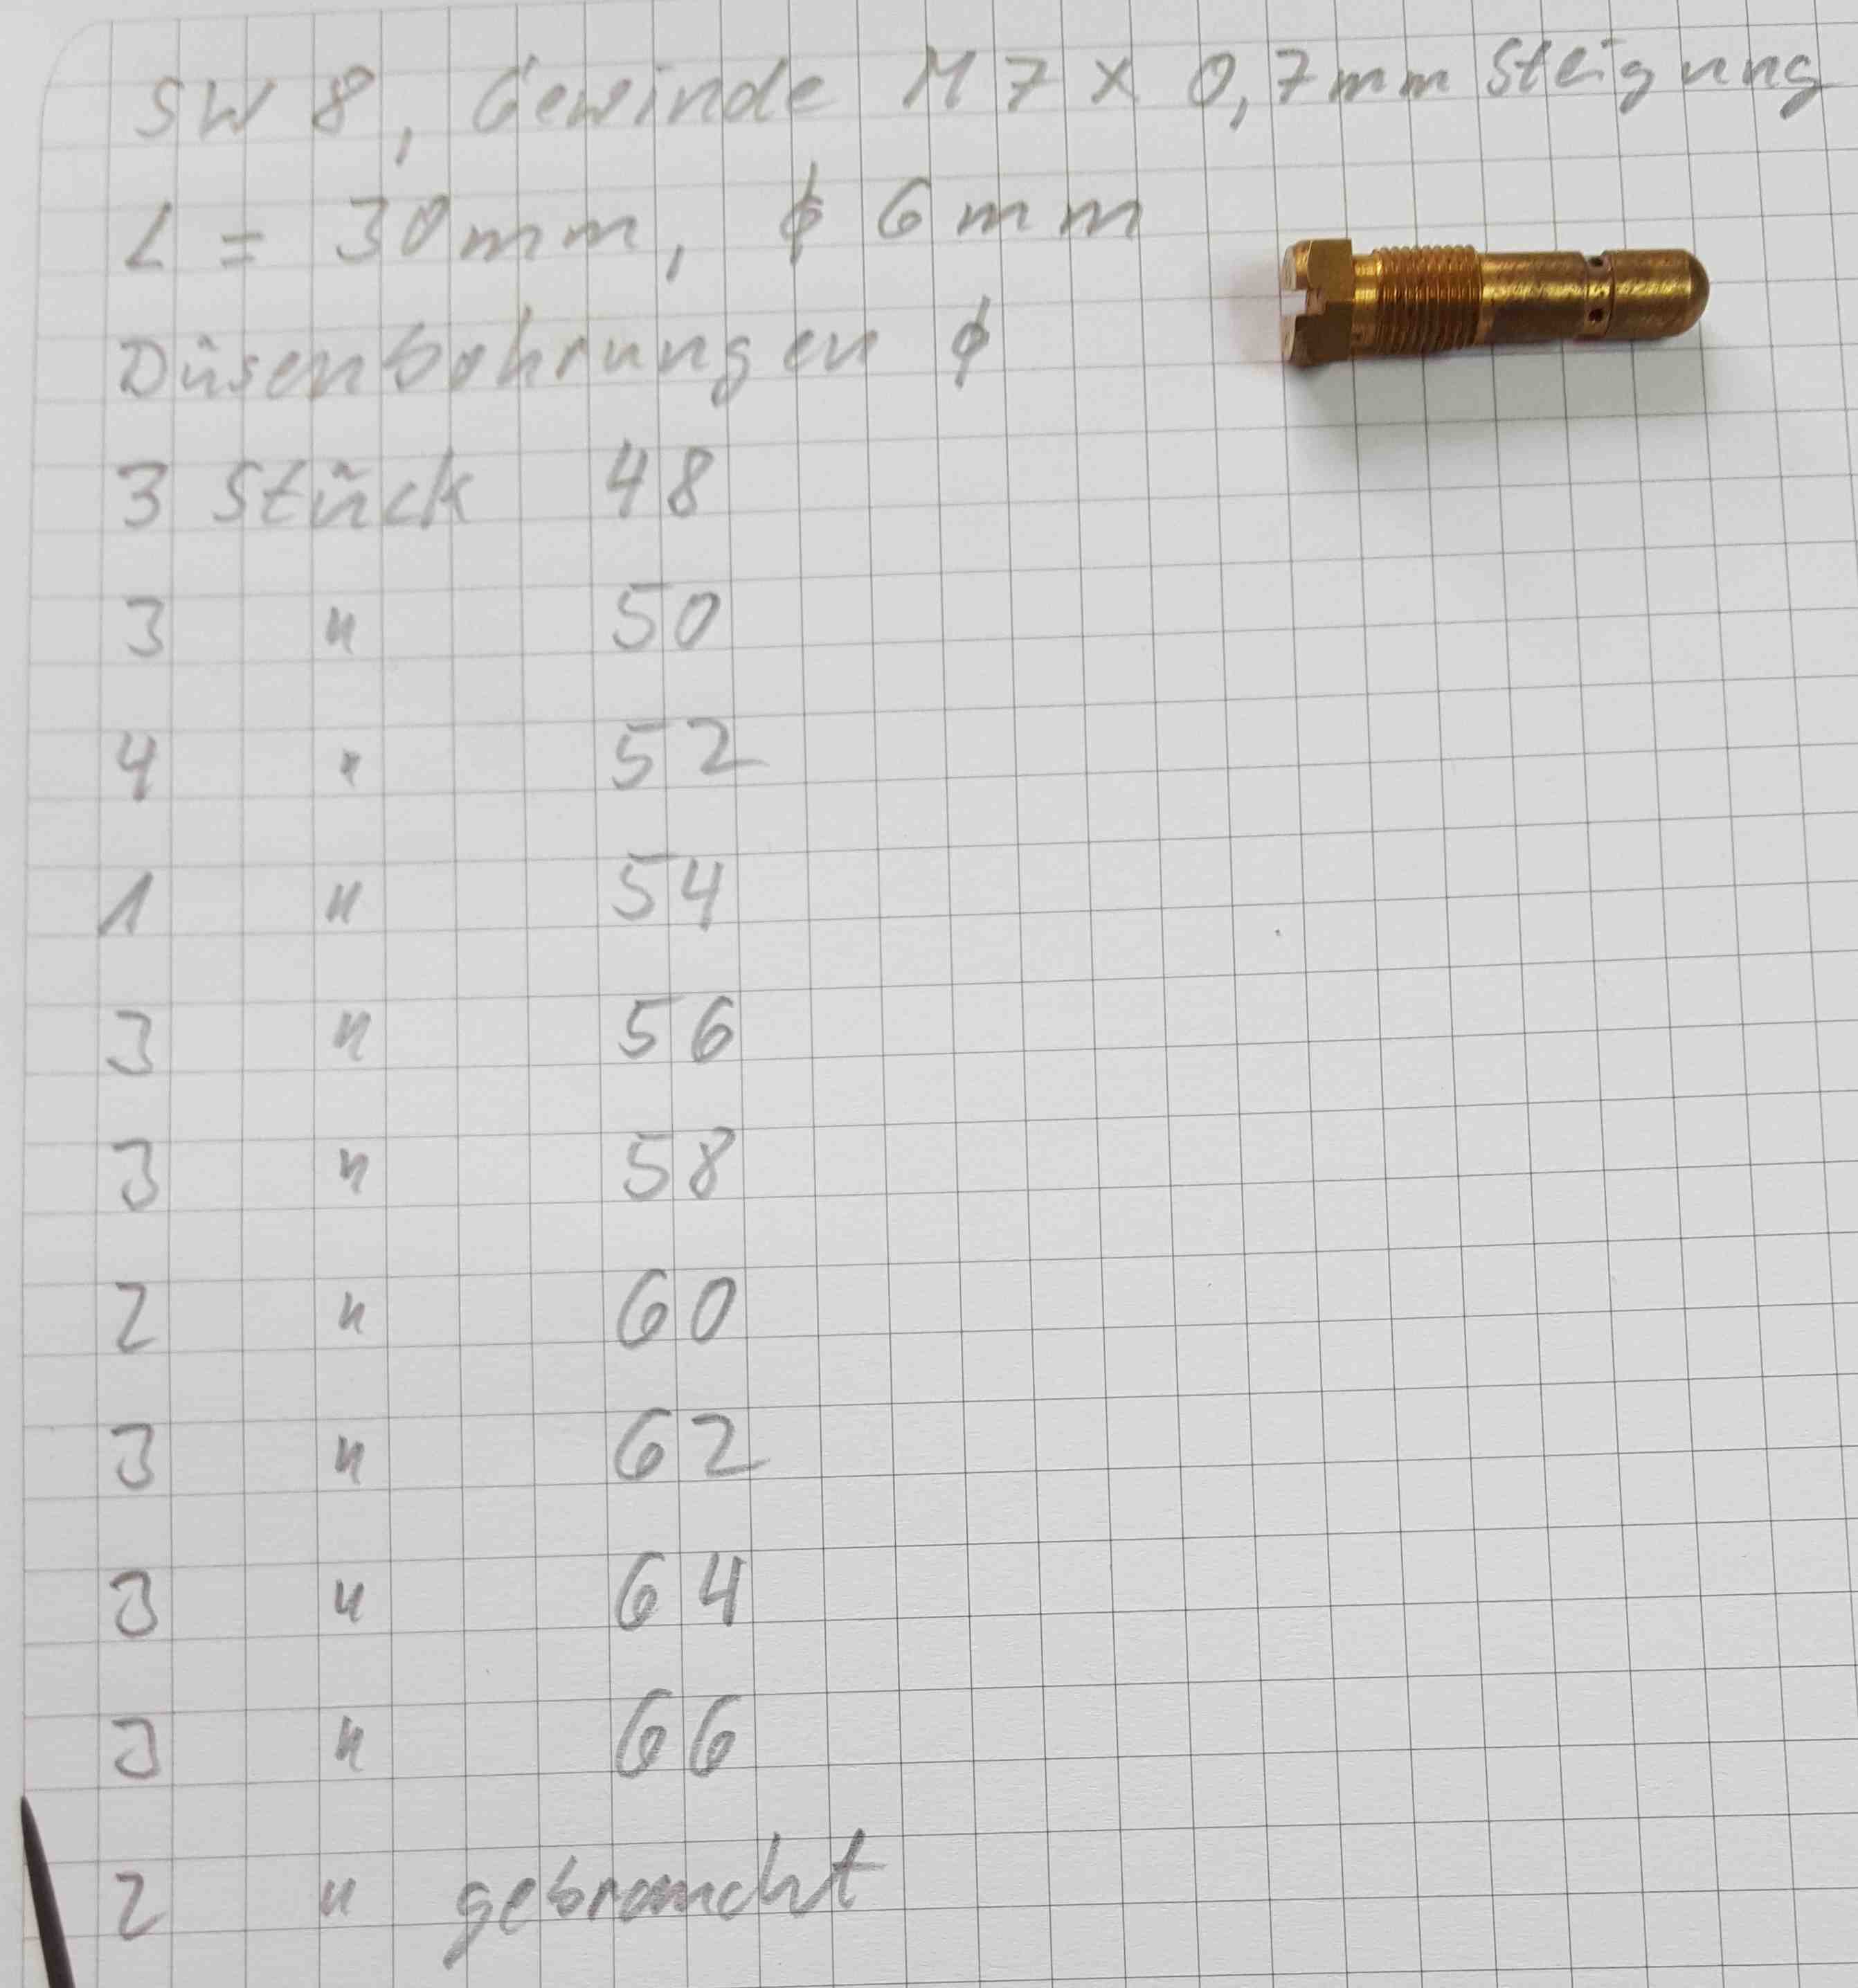 SW 8, Gewinde M 7 x 0,7mm Steigung
L = 30mm, ϕ 6mm
Düsenbohrungen ϕ
3 Stück 48
3 " 50
4 " 52
1 " 54
3 " 56
3 " 58
2 " 60
3 " 62
3 " 64
3 " 66
2 " gebraucht